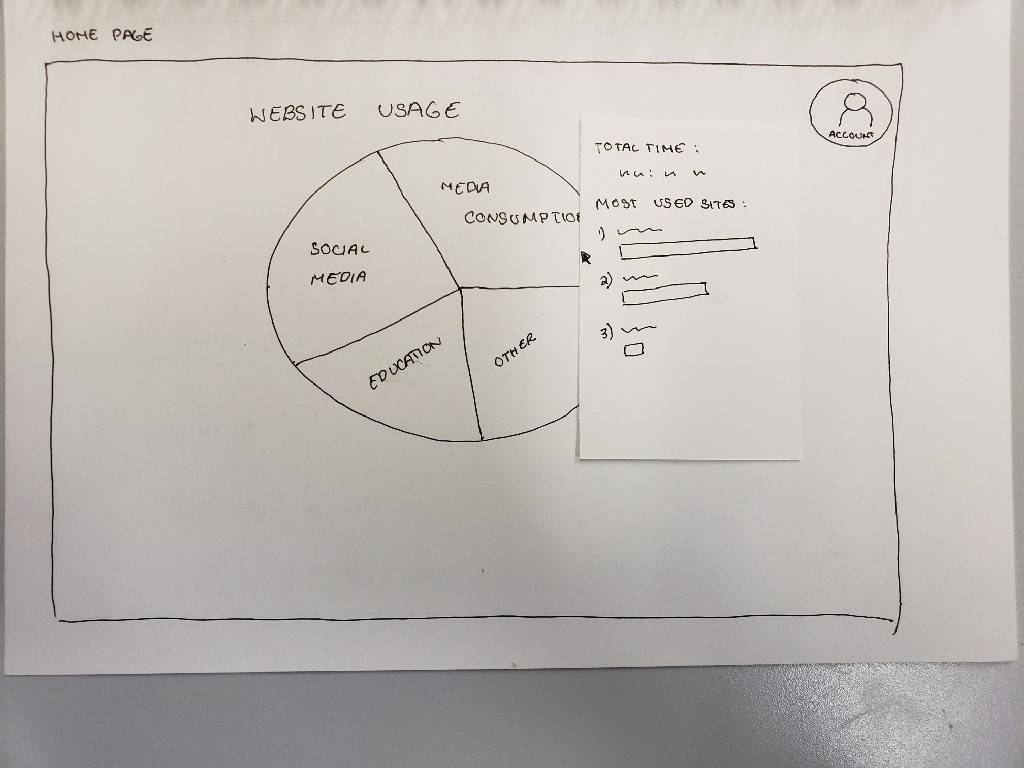 HOME PAGE
WEBSITE USAGE
ACCOUNT
MEDIA
CONSUMPTION
SOCIAL
MEDIA
EDUCATION
OTHER
TOTAL TIME :
MOST USED SITES :
1)
2)
3)